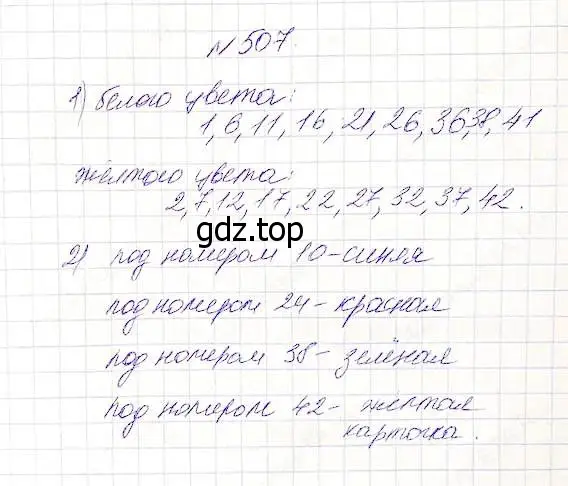 №507.
1) белого цвета:
1, 6, 11, 16, 21, 26, 36, 38, 41
жёлтого цвета:
2, 7, 12, 17, 22, 27, 32, 37, 42.
gdz.top
2) под номером 10-синяя
под номером 24-красная
под номером 38-зелёная
под номером 42-жёлтая
карточка.